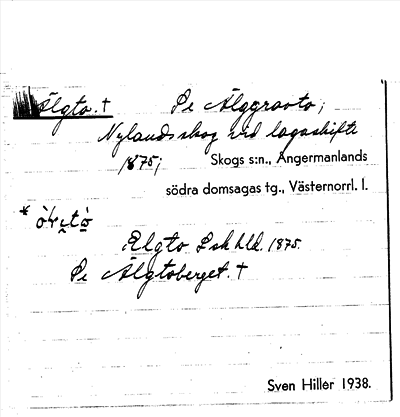 Älgto. † Se Älggravto;
Nylandsskog vid lagaskifte
1875; Skogs s:n., Ångermanlands
södra domsagas tg., Västernorrl. l.
Elgto Lskhld. 1875.
Se Älgtoberget. †
Sven Hiller 1938.